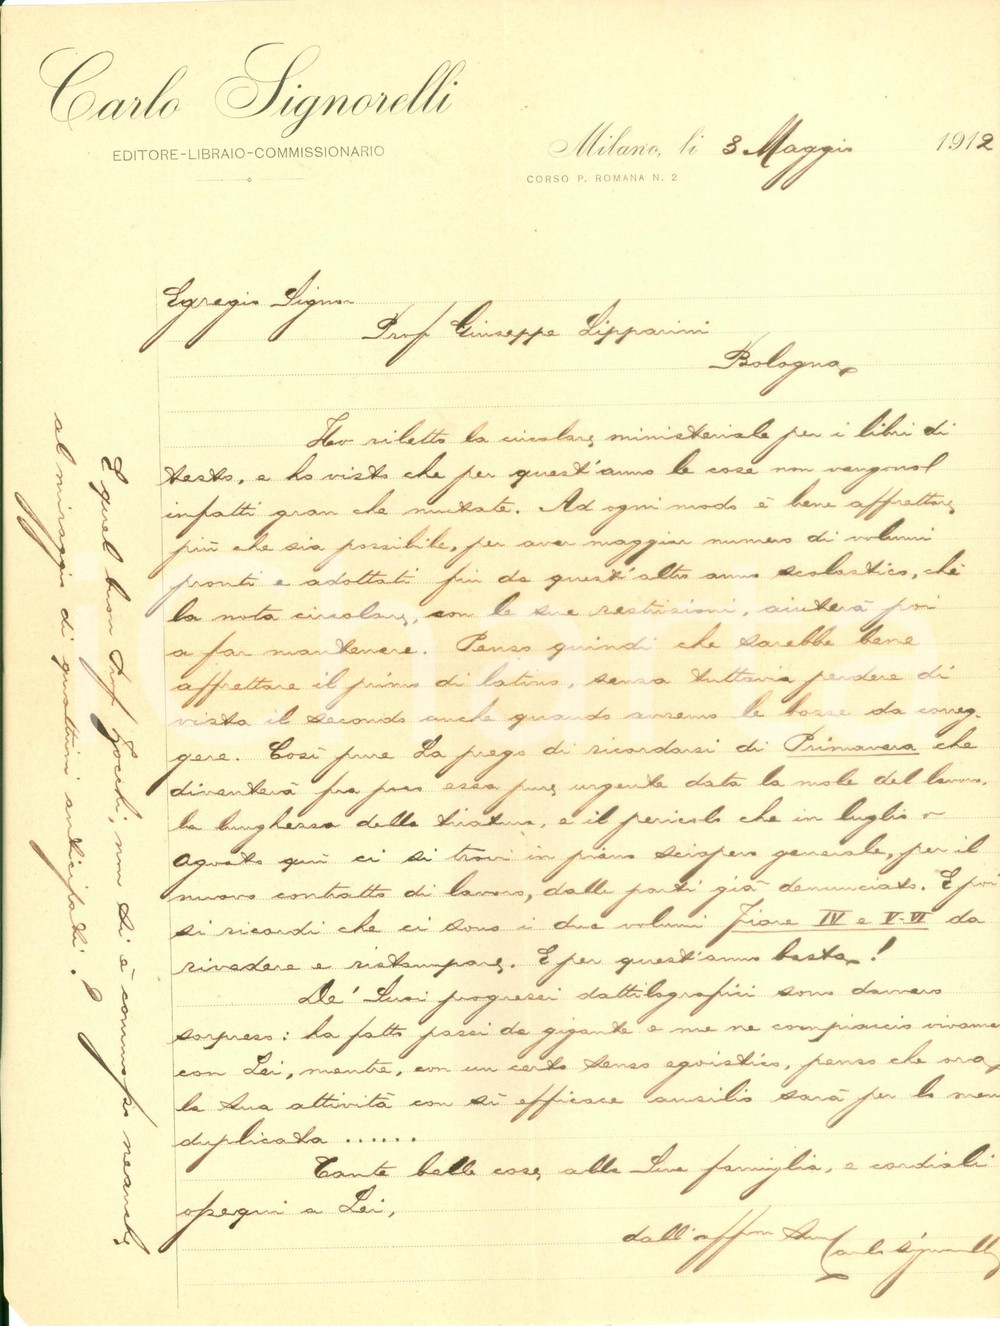 Carlo Signorelli
EDITORE-LIBRAIO-COMMISSIONARIO
Milano, li 3 Maggio 1912
CORSO P. ROMANA N. 2
Egregio Signor
Prof Giuseppe Lipparini
Bologna
Ho riletto la circolare ministeriale per i libri di
testo, e ho visto che per quest'anno le cose non vengono
infatti gran che mutate. Ad ogni modo è bene affrettare
più che sia possibile, per aver maggior numero di volumi
pronti e adottati fin da quest'altro anno scolastico, chè
la nota circolare, con le sue restrizioni, aiuterà poi
a far mantenere. Penso quindi che sarebbe bene
affrettare il primo di latino, senza tuttavia perdere di
vista il secondo anche quando avremo le bozze da correg-
gere. Così pure La prego di ricordarsi di Primavera che
diventerà fra poco essa pure urgente data la mole del lavoro,
la lunghezza della tiratura, e il pericolo che in luglio o
agosto qui ci si trovi in pieno sciopero generale, per il
nuovo contratto di lavoro, dalle parti già denunciato. E poi
si ricordi che ci sono i due volumi Fiore IV e V-VI da
rivedere e ristampare. E per quest'anno basta!
De' Suoi progressi dattilografici sono davvero
sorpreso: ha fatto passi da gigante e me ne compiaccio vivame
con Lei, mentre, con un certo senso egoistico, penso che ora,
la sua attività con sì efficace ausilio sarà per lo men
duplicata ......
Tante belle cose alla Sua famiglia, e cordiali
ossequi a Lei,
dall'affmo Suo Carlo Signorelli
E quel buon Prof Zocchi, non si è commosso neanche
al miraggio di quattrini anticipati?